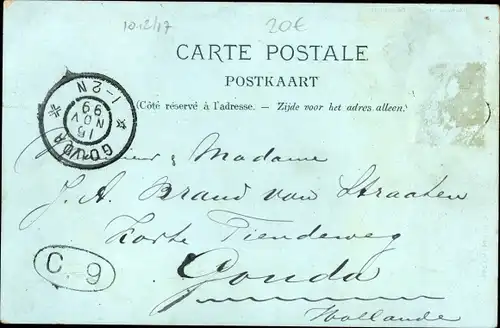 10-12/17 20€
CARTE POSTALE
POSTKAART
(Côté réservé à l'adresse. — Zijde voor het adres alleen.)
GOUDA
15
NOV
99
1-2N
Monsieur & Madame
J. A. Brand van Straaten
Korte Tiendeweg
Gouda
Hollande
C. 9